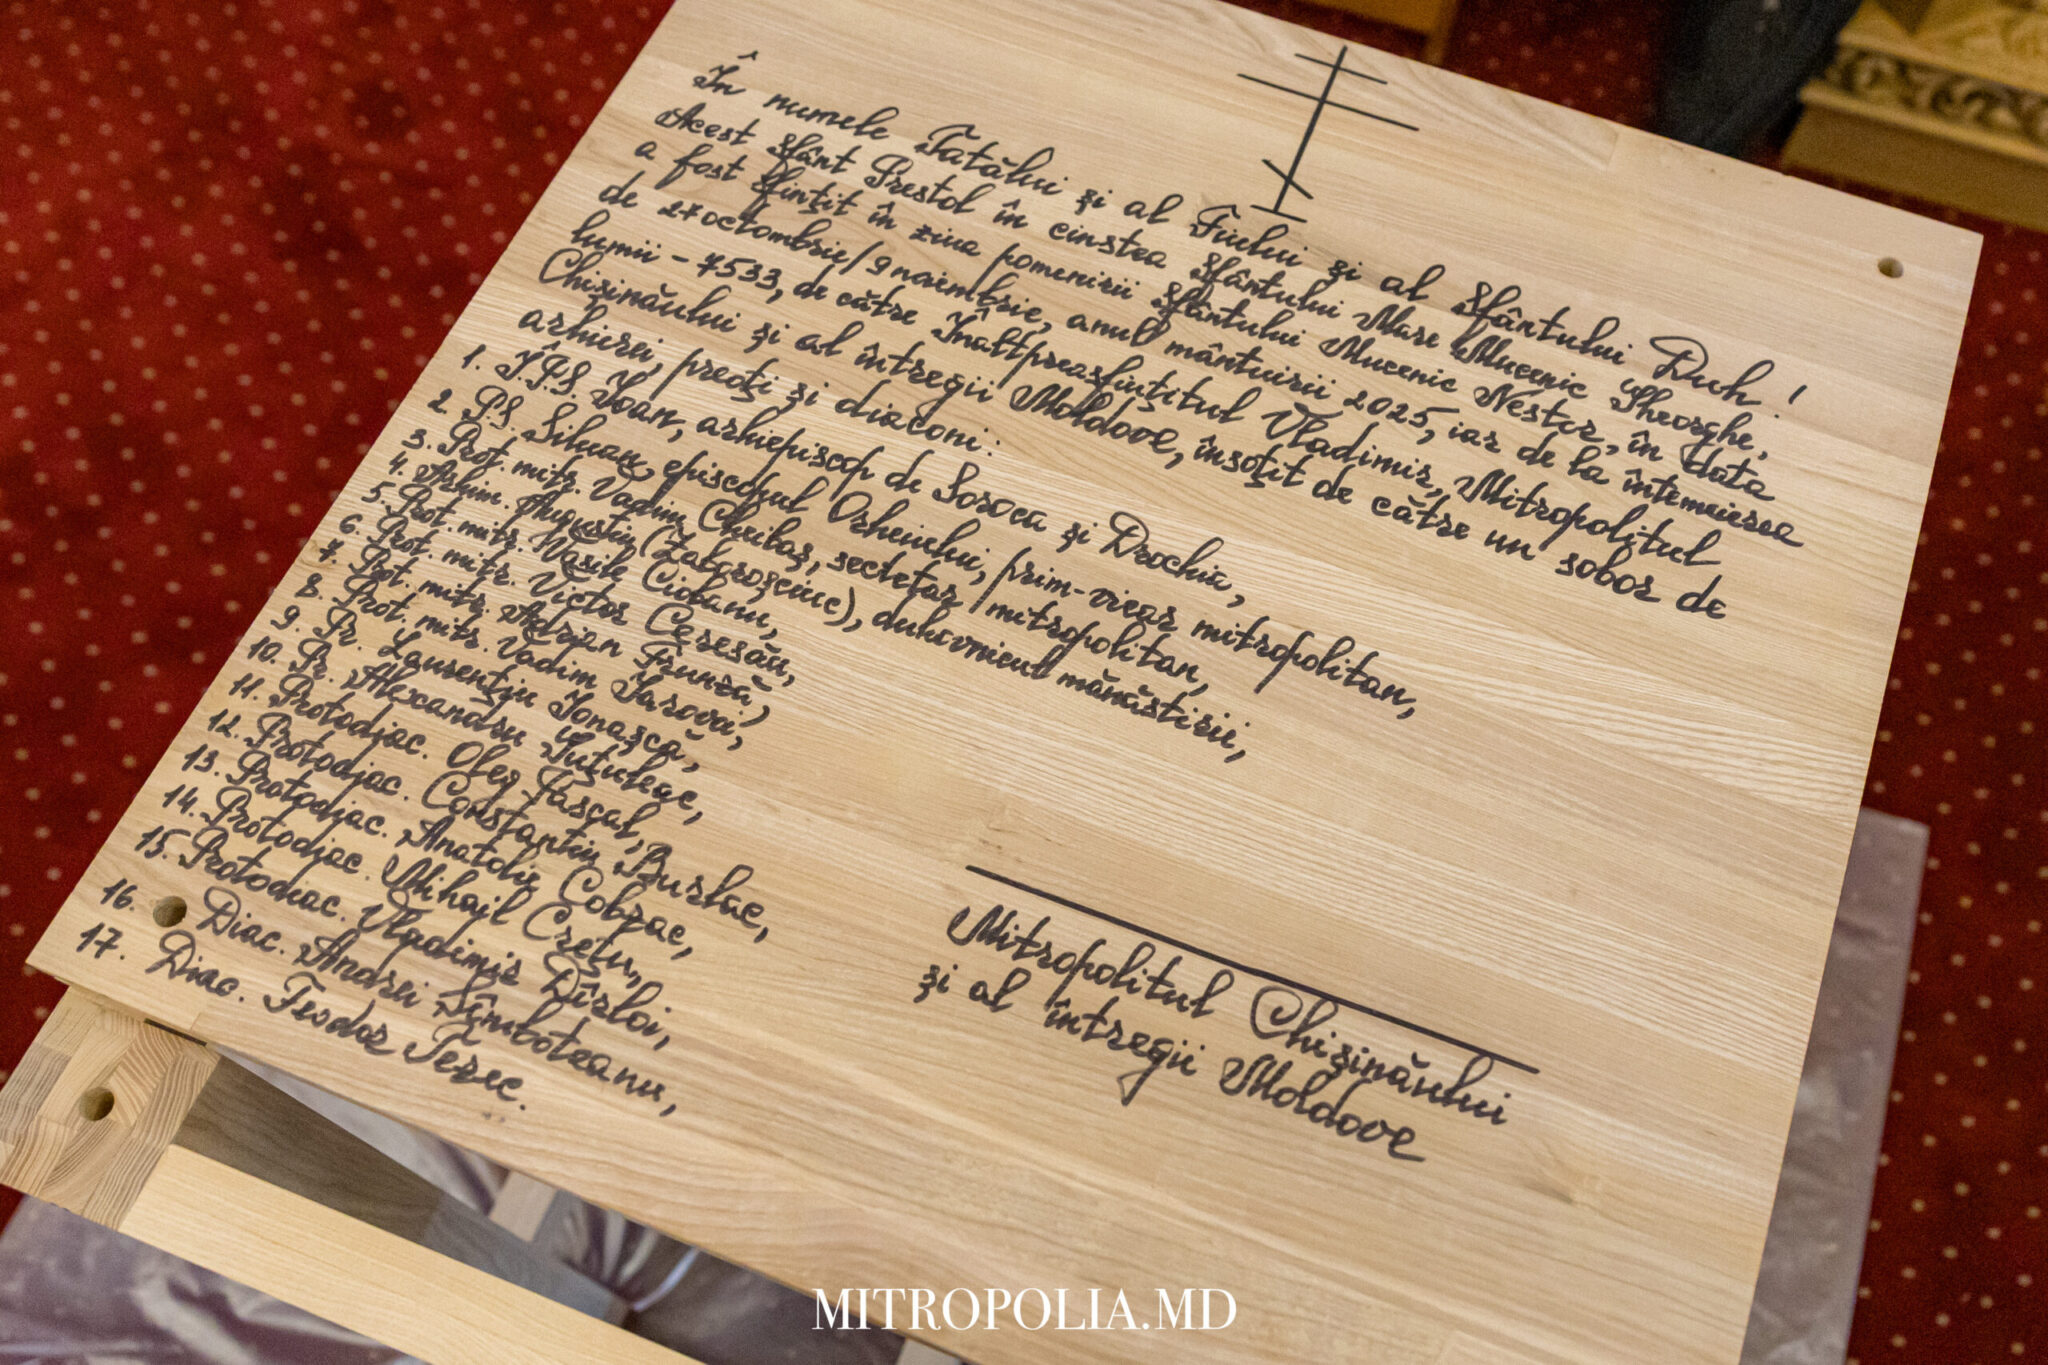 În numele Tatălui și al Fiului și al Sfântului Duh!
Acest sfânt Prestol în cinstea Sfântului Mare Mucenic Gheorghe,
a fost sfințit în ziua pomenirii Sfântului Mucenic Nestor, în data
de 27 octombrie/9 noiembrie, anul mântuirii 2025, iar de la întemeierea
lumii - 7533, de către Înaltpreasfințitul Vladimir, Mitropolitul
Chișinăului și al întregii Moldove, însoțit de către un sobor de
arhierei, preoți și diaconi:
1. Î.P.S. Ioan, arhiepiscop de Soroca și Drochia,
2. P.S. Siluan, episcopul Orheiului, prim-vicar mitropolitan,
3. Prot. mitr. Vadim Cheibaș, secretar mitropolitan,
4. Arhim. Augustin (Zaboroșciuc), duhovnicul mănăstirii,
5. Prot. mitr. Vasile Ciobanu,
6. Prot. mitr. Victor Ceresău,
7. Prot. mitr. Adrian Frunză,
8. Prot. mitr. Vadim Sarovoi,
9. Pr. Laurențiu Ionașcă,
10. Pr. Alexandru Țuțuleac,
11. Protodiac. Oleg Pascal,
12. Protodiac. Constantin Burlac,
13. Protodiac. Anatolie Cobzac,
14. Protodiac. Mihail Crețu,
15. Protodiac. Vladimir Dîrloi,
16. Diac. Andrei Sîmboteanu,
17. Diac. Teodor Terec.
Mitropolitul Chișinăului
și al întregii Moldove
MITROPOLIA.MD